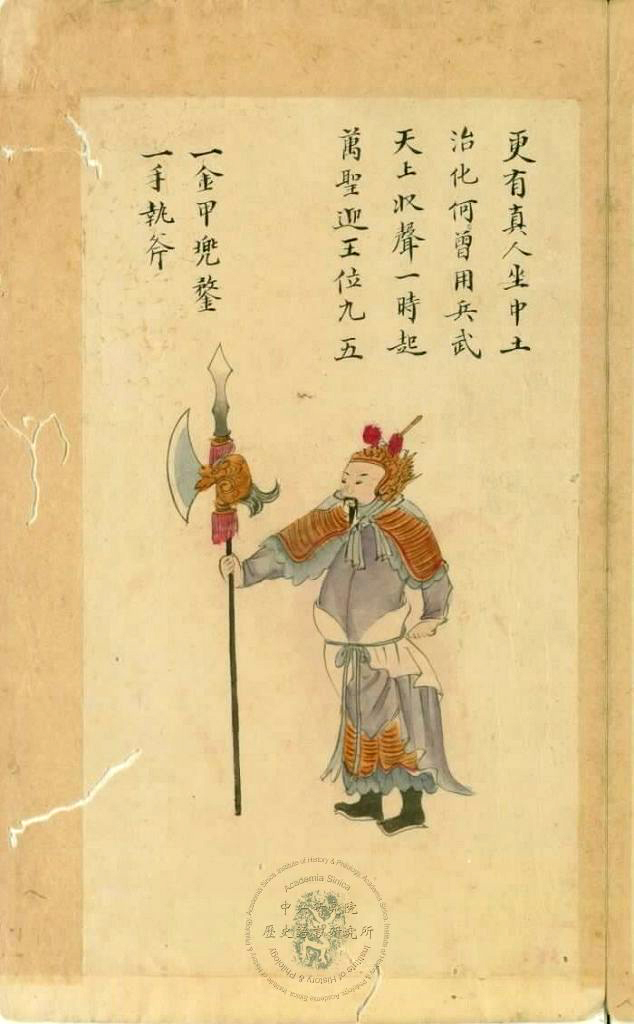 更有真人坐中土
治化何曾用兵武
天上収聲一時起
萬聖迎王位九五
一金甲兜鍪
一手執斧
Institute of History & Philology, Academia Sinica
Academia Sinica
中央研究院
歷史語言研究所
Institute of History & Philology